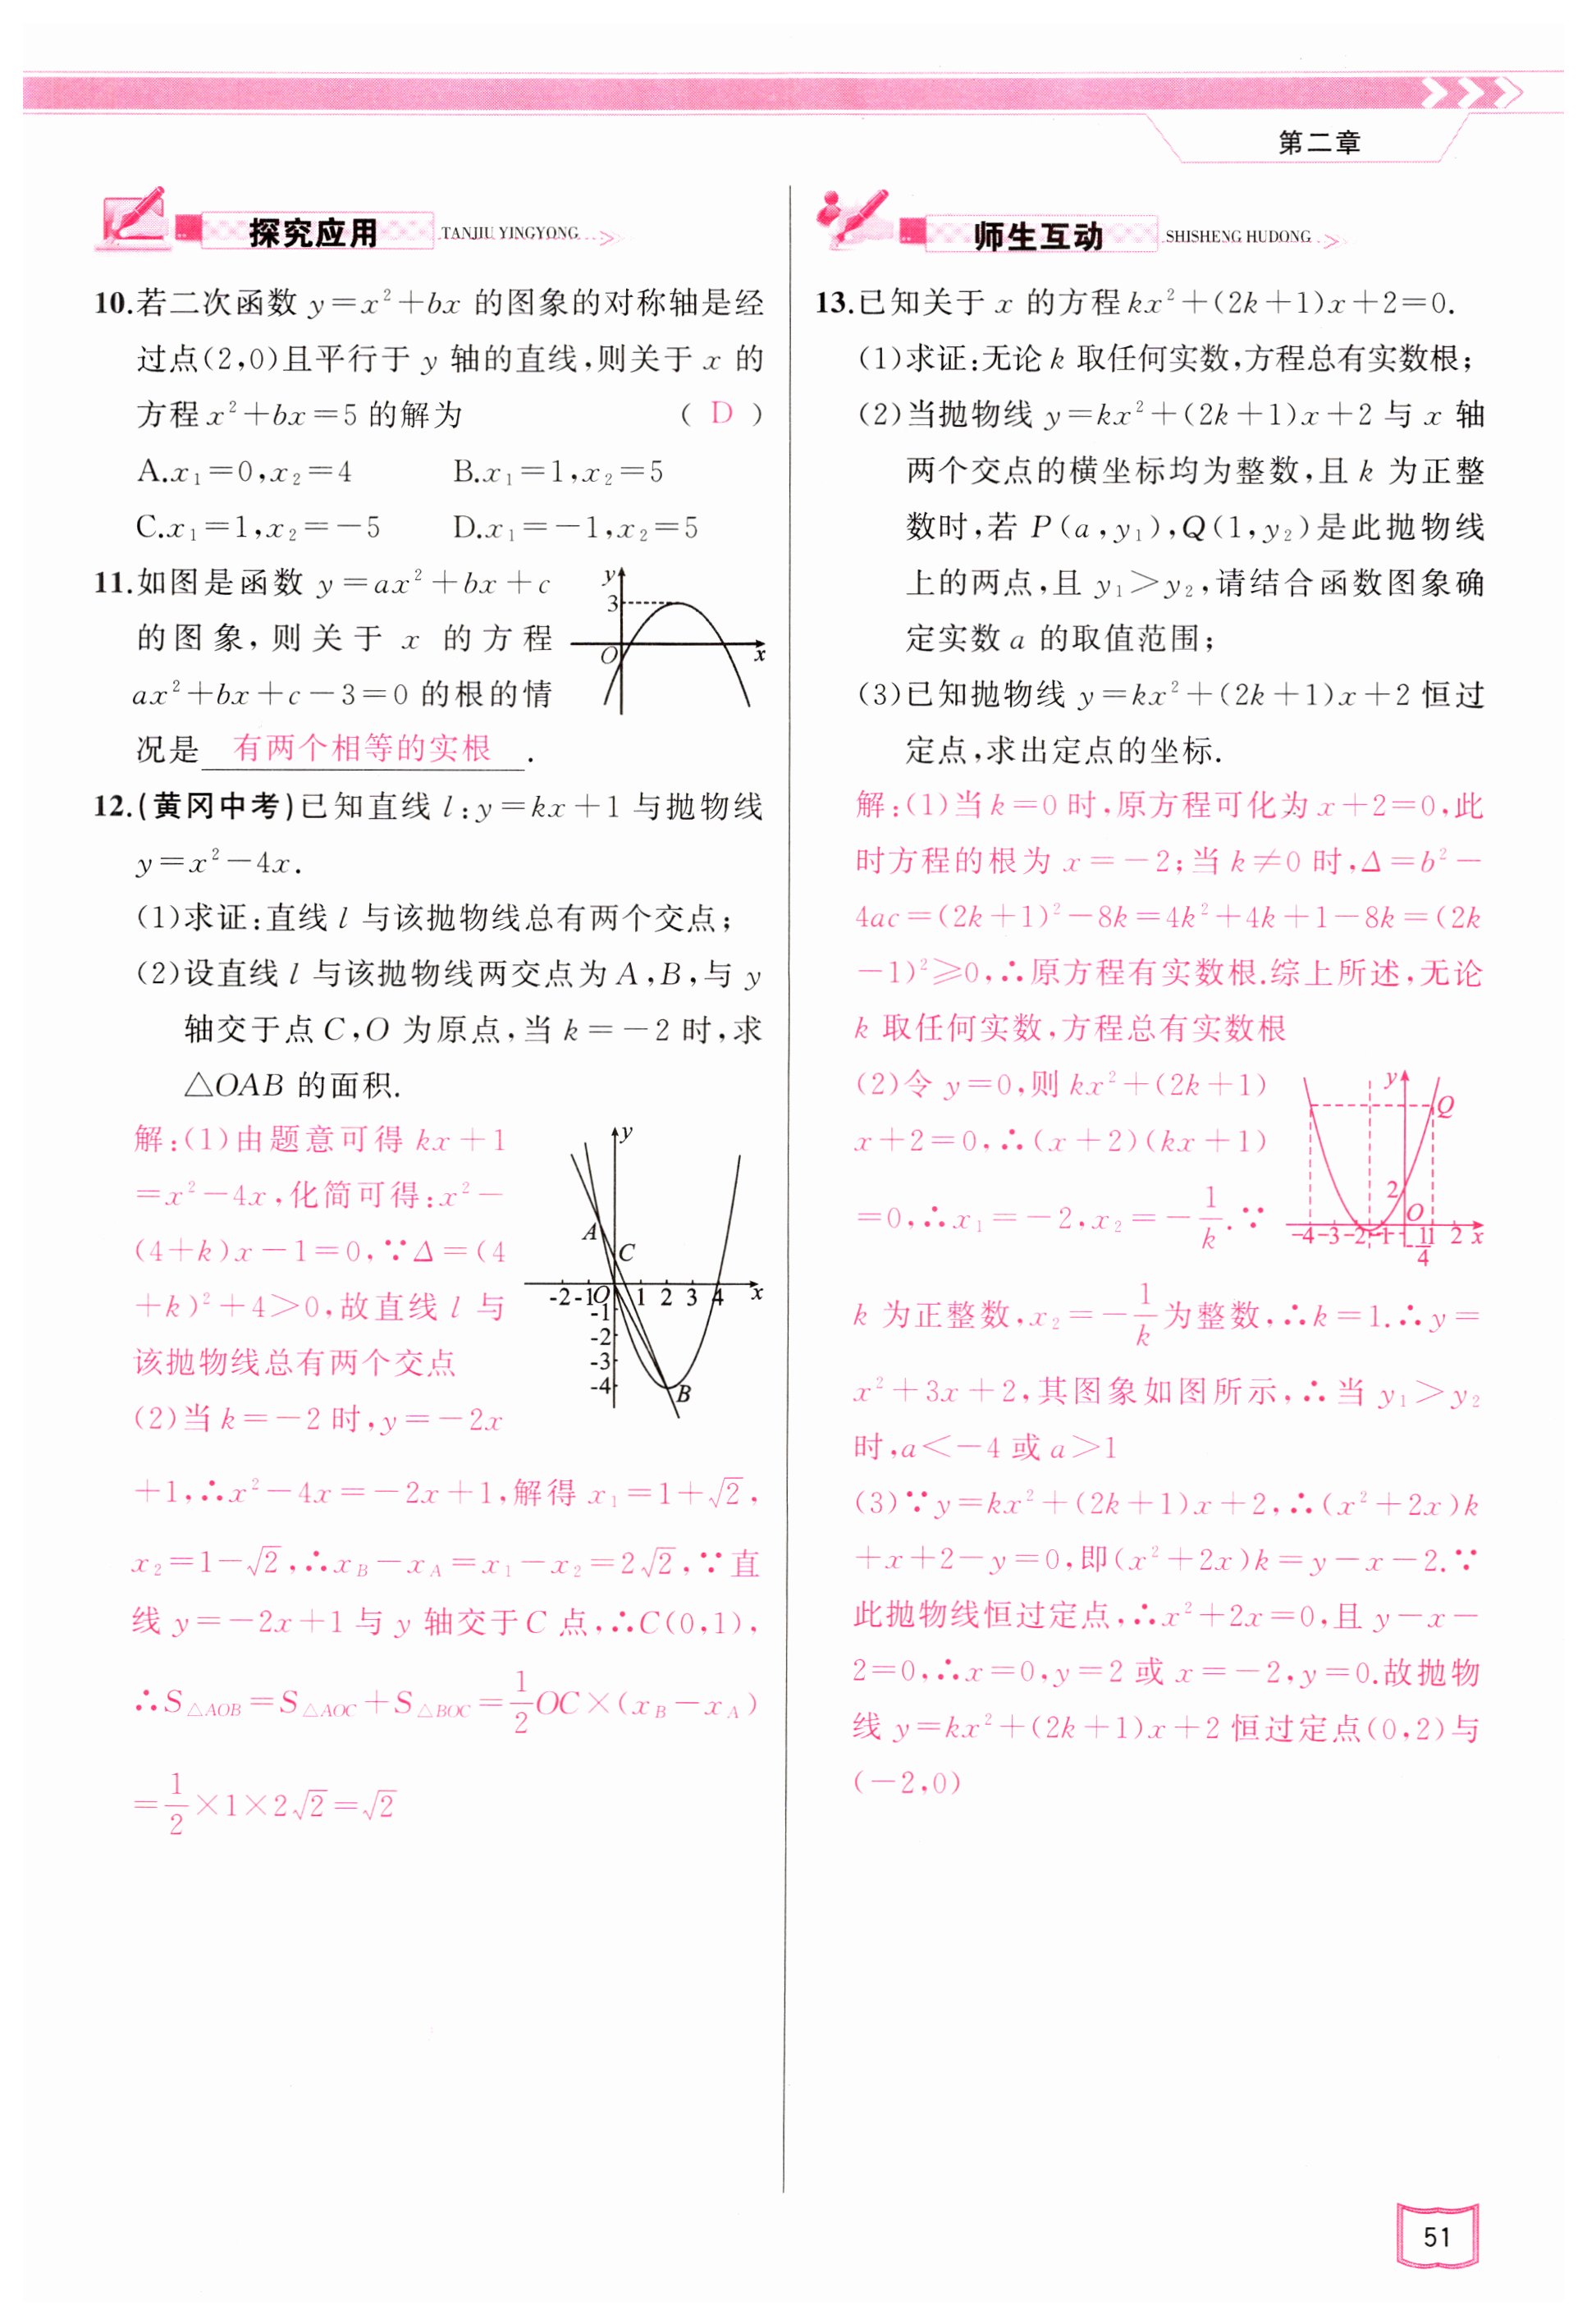 第二章
探究应用 TANJIU YINGYONG
10.若二次函数 y=x²+bx 的图象的对称轴是经
过点(2,0)且平行于 y 轴的直线,则关于 x 的
方程 x²+bx=5 的解为 ( D )
A.x₁=0,x₂=4 B.x₁=1,x₂=5
C.x₁=1,x₂=-5 D.x₁=-1,x₂=5
11.如图是函数 y=ax²+bx+c
的图象,则关于 x 的方程
ax²+bx+c-3=0 的根的情
况是 有两个相等的实根 .
y
3
O
x
12.(黄冈中考)已知直线 l:y=kx+1 与抛物线
y=x²-4x.
(1)求证:直线 l 与该抛物线总有两个交点;
(2)设直线 l 与该抛物线两交点为 A,B,与 y
轴交于点 C,O 为原点,当 k=-2 时,求
△OAB 的面积.
解:(1)由题意可得 kx+1
=x²-4x,化简可得:x²-
(4+k)x-1=0,∵Δ=(4
+k)²+4>0,故直线 l 与
该抛物线总有两个交点
(2)当 k=-2 时,y=-2x
y
A
C
-2 -1 O 1 2 3 4 x
-1
-2
-3
-4
B
+1,∴x²-4x=-2x+1,解得 x₁=1+√2,
x₂=1-√2,∴x_B-x_A=x₁-x₂=2√2,∵直
线 y=-2x+1 与 y 轴交于 C 点,∴C(0,1),
∴S△AOB=S△AOC+S△BOC=1/2 OC×(x_B-x_A)
=1/2×1×2√2=√2
师生互动 SHISHENG HUDONG
13.已知关于 x 的方程 kx²+(2k+1)x+2=0.
(1)求证:无论 k 取任何实数,方程总有实数根;
(2)当抛物线 y=kx²+(2k+1)x+2 与 x 轴
两个交点的横坐标均为整数,且 k 为正整
数时,若 P(a,y₁),Q(1,y₂)是此抛物线
上的两点,且 y₁>y₂,请结合函数图象确
定实数 a 的取值范围;
(3)已知抛物线 y=kx²+(2k+1)x+2 恒过
定点,求出定点的坐标.
解:(1)当 k=0 时,原方程可化为 x+2=0,此
时方程的根为 x=-2;当 k≠0 时,Δ=b²-
4ac=(2k+1)²-8k=4k²+4k+1-8k=(2k
-1)²≥0,∴原方程有实数根.综上所述,无论
k 取任何实数,方程总有实数根
(2)令 y=0,则 kx²+(2k+1)
x+2=0,∴(x+2)(kx+1)
=0,∴x₁=-2,x₂=-1/k.∵
y
Q
2
O
-4 -3 -2 -1 1 2 x
-1/4
k 为正整数,x₂=-1/k为整数,∴k=1.∴y=
x²+3x+2,其图象如图所示,∴当 y₁>y₂
时,a<-4 或 a>1
(3)∵y=kx²+(2k+1)x+2,∴(x²+2x)k
+x+2-y=0,即(x²+2x)k=y-x-2.∵
此抛物线恒过定点,∴x²+2x=0,且 y-x-
2=0,∴x=0,y=2 或 x=-2,y=0.故抛物
线 y=kx²+(2k+1)x+2 恒过定点(0,2)与
(-2,0)
51